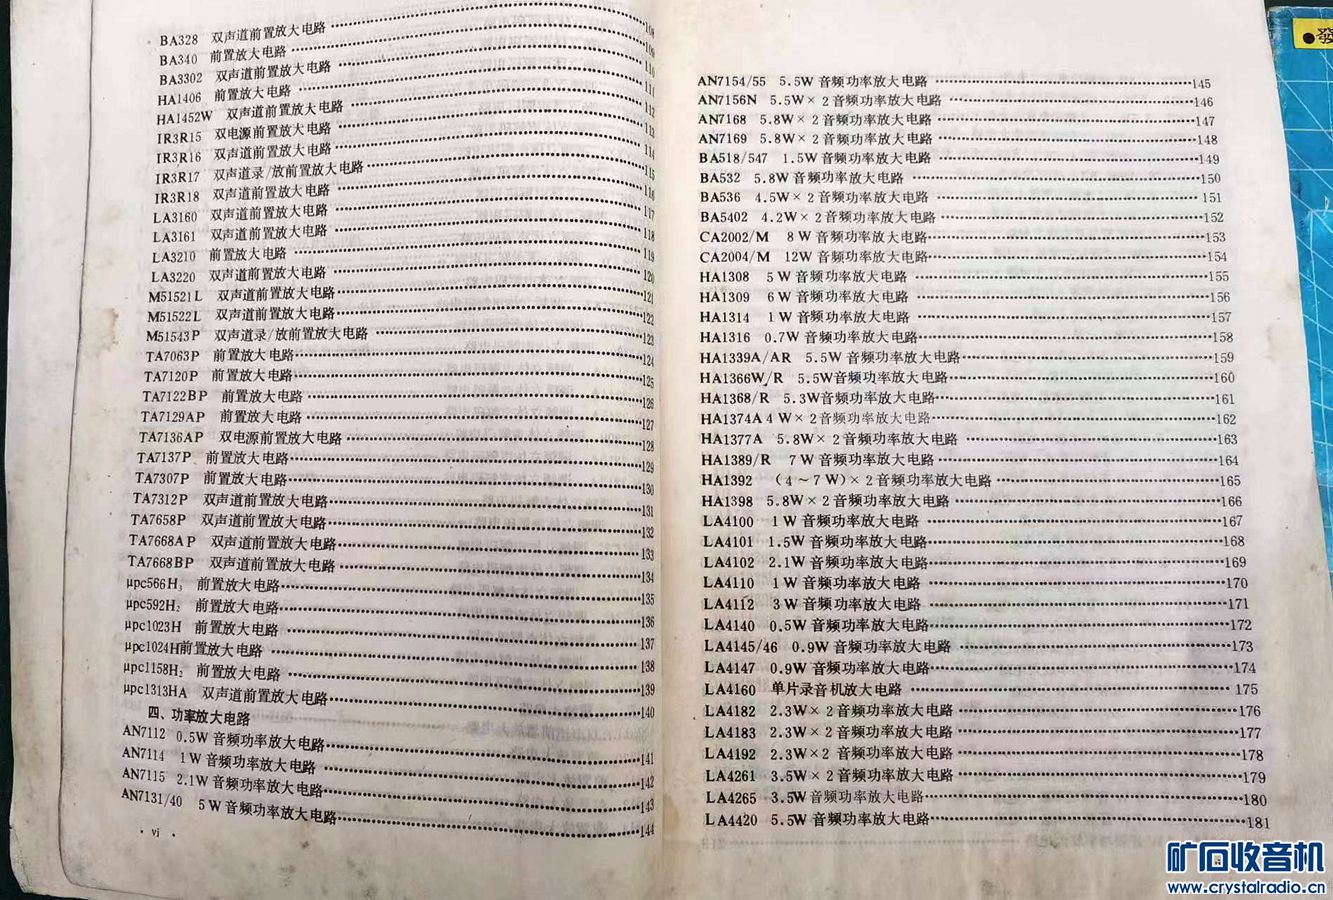 BA328 双声道前置放大电路 ……… 108
BA340 前置放大电路 ……… 109
BA3302 双声道前置放大电路 ……… 110
HA1406 前置放大电路 ……… 111
HA1452W 双声道前置放大电路 ……… 112
IR3R15 双电源前置放大电路 ……… 113
IR3R16 双声道前置放大电路 ……… 114
IR3R17 双声道录/放前置放大电路 ……… 115
IR3R18 双声道前置放大电路 ……… 116
LA3160 双声道前置放大电路 ……… 117
LA3161 双声道前置放大电路 ……… 118
LA3210 前置放大电路 ……… 119
LA3220 双声道前置放大电路 ……… 120
M51521L 双声道前置放大电路 ……… 121
M51522L 双声道前置放大电路 ……… 122
M51543P 双声道录/放前置放大电路 ……… 123
TA7063P 前置放大电路 ……… 124
TA7120P 前置放大电路 ……… 125
TA7122BP 前置放大电路 ……… 126
TA7129AP 前置放大电路 ……… 127
TA7136AP 双电源前置放大电路 ……… 128
TA7137P 前置放大电路 ……… 129
TA7307P 前置放大电路 ……… 130
TA7312P 双声道前置放大电路 ……… 131
TA7658P 双声道前置放大电路 ……… 132
TA7668AP 双声道前置放大电路 ……… 133
TA7668BP 双声道前置放大电路 ……… 134
μpc566H₃ 前置放大电路 ……… 135
μpc592H₂ 前置放大电路 ……… 136
μpc1023H 前置放大电路 ……… 137
μpc1024H前置放大电路 ……… 138
μpc1158H₂ 前置放大电路 ……… 139
μpc1313HA 双声道前置放大电路 ……… 140
四、功率放大电路
AN7112 0.5W音频功率放大电路 ……… 141
AN7114 1W音频功率放大电路 ……… 142
AN7115 2.1W音频功率放大电路 ……… 143
AN7131/40 5W音频功率放大电路 ……… 144
· vj ·
AN7154/55 5.5W音频功率放大电路 ……… 145
AN7156N 5.5W×2音频功率放大电路 ……… 146
AN7168 5.8W×2音频功率放大电路 ……… 147
AN7169 5.8W×2音频功率放大电路 ……… 148
BA518/547 1.5W音频功率放大电路 ……… 149
BA532 5.8W音频功率放大电路 ……… 150
BA536 4.5W×2音频功率放大电路 ……… 151
BA5402 4.2W×2音频功率放大电路 ……… 152
CA2002/M 8W音频功率放大电路 ……… 153
CA2004/M 12W音频功率放大电路 ……… 154
HA1308 5W音频功率放大电路 ……… 155
HA1309 6W音频功率放大电路 ……… 156
HA1314 1W音频功率放大电路 ……… 157
HA1316 0.7W音频功率放大电路 ……… 158
HA1339A/AR 5.5W音频功率放大电路 ……… 159
HA1366W/R 5.5W音频功率放大电路 ……… 160
HA1368/R 5.3W音频功率放大电路 ……… 161
HA1374A 4W×2音频功率放大电路 ……… 162
HA1377A 5.8W×2音频功率放大电路 ……… 163
HA1389/R 7W音频功率放大电路 ……… 164
HA1392 (4～7W)×2音频功率放大电路 ……… 165
HA1398 5.8W×2音频功率放大电路 ……… 166
LA4100 1W音频功率放大电路 ……… 167
LA4101 1.5W音频功率放大电路 ……… 168
LA4102 2.1W音频功率放大电路 ……… 169
LA4110 1W音频功率放大电路 ……… 170
LA4112 3W音频功率放大电路 ……… 171
LA4140 0.5W音频功率放大电路 ……… 172
LA4145/46 0.9W音频功率放大电路 ……… 173
LA4147 0.9W音频功率放大电路 ……… 174
LA4160 单片录音机放大电路 ……… 175
LA4182 2.3W×2音频功率放大电路 ……… 176
LA4183 2.3W×2音频功率放大电路 ……… 177
LA4192 2.3W×2音频功率放大电路 ……… 178
LA4261 3.5W×2音频功率放大电路 ……… 179
LA4265 3.5W音频功率放大电路 ……… 180
LA4420 5.5W音频功率放大电路 ……… 181
●發
矿石收音机
www.crystalradio.cn